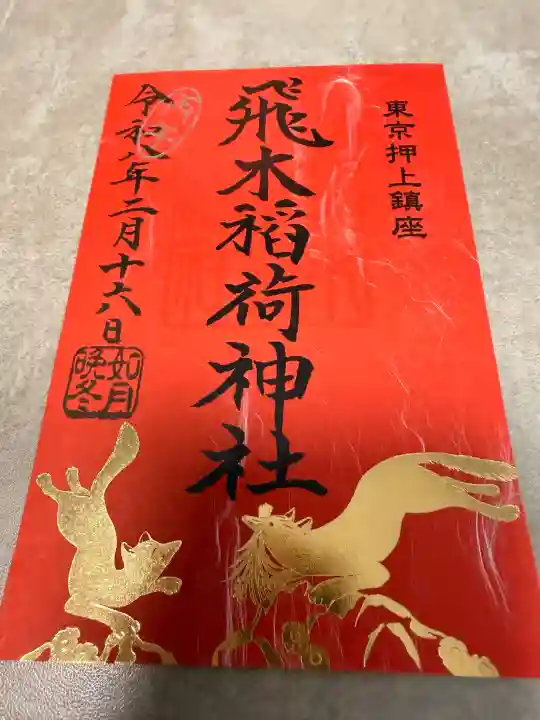 東京押上鎮座
飛木稲荷神社
令和八年二月十六日
如月
晩冬